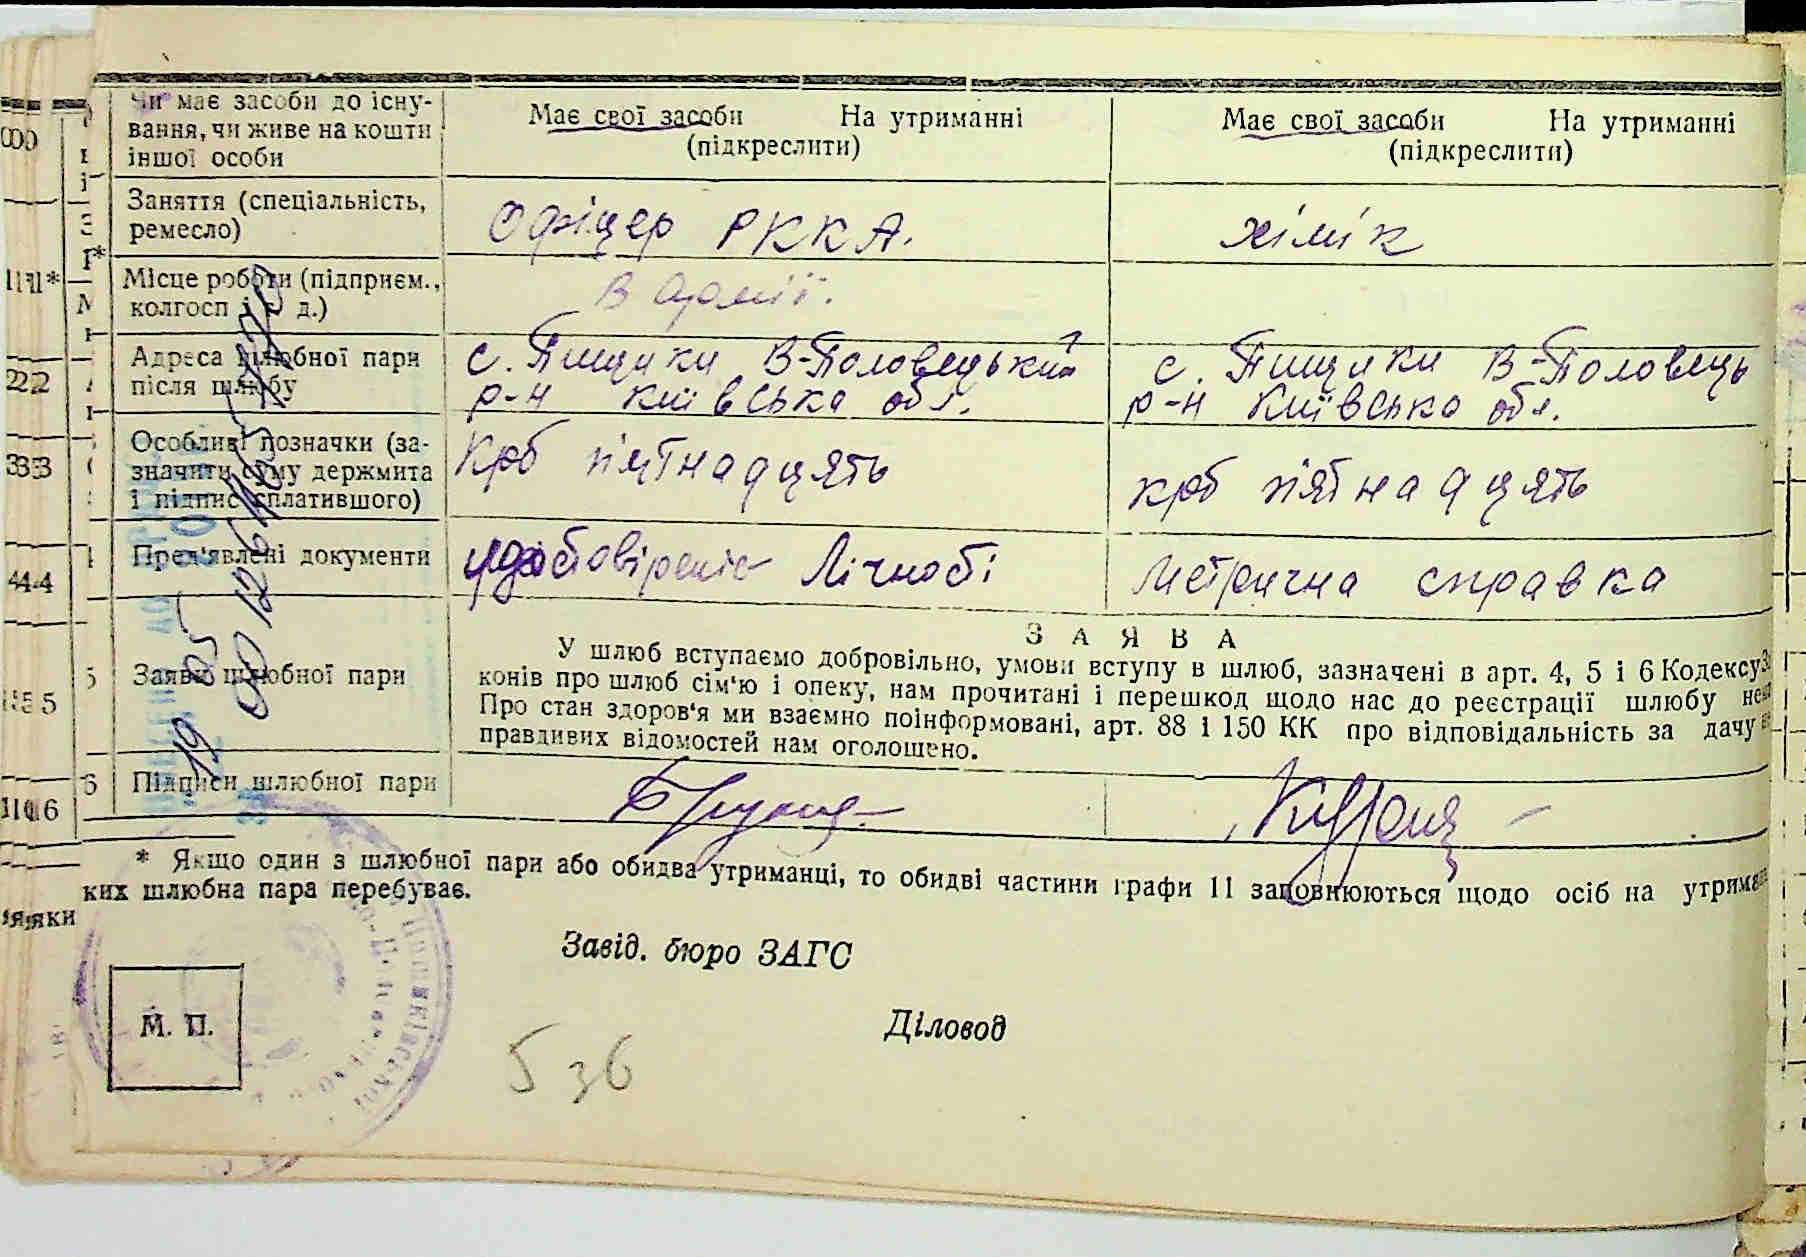 Чи має засоби до існу-
вання, чи живе на кошти
іншої особи
Має свої засоби На утриманні
(підкреслити)
Має свої засоби На утриманні
(підкреслити)
Заняття (спеціальність,
ремесло)
Офіцер РККА.
хімік
Місце роботи (підприєм.,
колгосп і т. д.)
В Армії.
Адреса шлюбної пари
після шлюбу
с. Пищики В-Половецький
р-н Київська обл.
с. Пищики В-Половець
р-н Київська обл.
Особливі позначки (за-
значити суму держмита
і підпис сплатившого)
Крб п'ятнадцять
крб п'ятнадцять
Пред'явлені документи
Лічності
Метрична справка
Заява шлюбної пари
ЗАЯВА
У шлюб вступаємо добровільно, умови вступу в шлюб, зазначені в арт. 4, 5 і 6 Кодексу За
конів про шлюб сім'ю і опеку, нам прочитані і перешкод щодо нас до реєстрації шлюбу
Про стан здоров'я ми взаємно поінформовані, арт. 88 і 150 КК про відповідальність за дачу
правдивих відомостей нам оголошено.
Підписи шлюбної пари
* Якщо один з шлюбної пари або обидва утриманці, то обидві частини графи 11 заповнюються щодо осіб на
ких шлюбна пара перебуває.
Завід. бюро ЗАГС
М. П.
Діловод